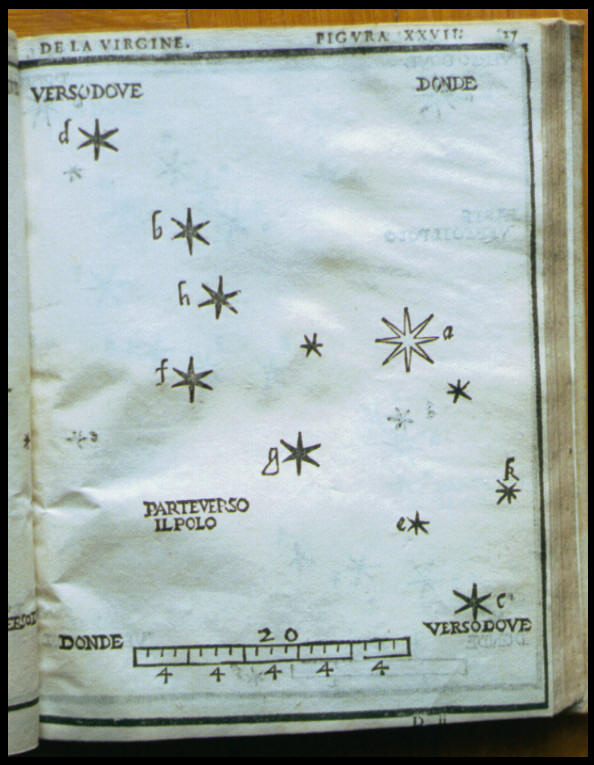 DE LA VIRGINE. FIGVRA XXVII. 37
VERSO DOVE DONDE
d
b
h
a
f
g
k
PARTE VERSO
IL POLO
e
c
VERSO DOVE
DONDE
20
4 4 4 4 4